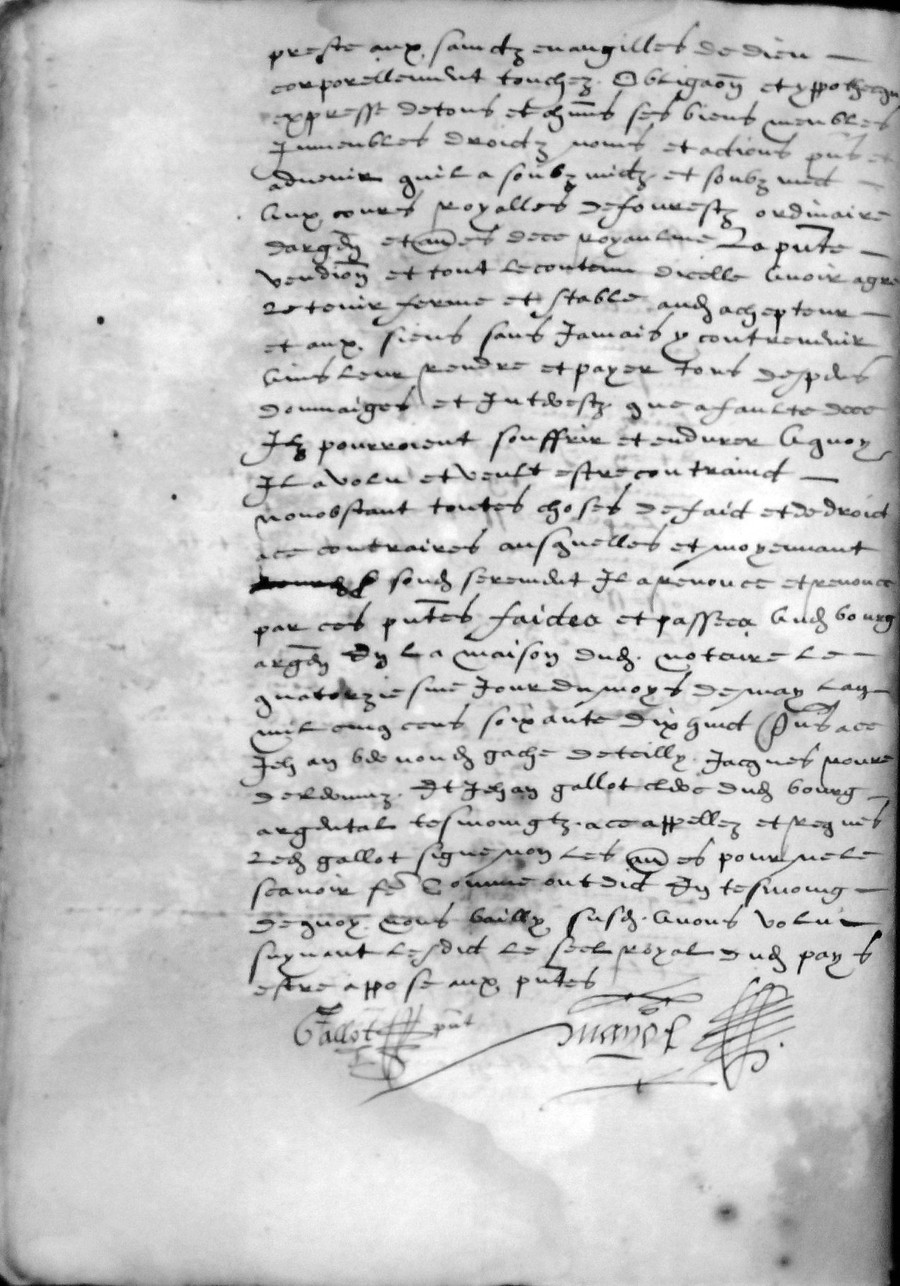 preste aux sainctz evangilles de dieu
corporellement touchez. Obligaōn et ypothecque
expresse de tous et chūns ses biens meubles
Immeubles droictz noms et actions pñs et
advenir quil a soubzmictz et soubzmect
Aux cours royalles deforestz ordinaire
dargēt et aūes de ce royaulme La pñte
vendiōn et tout le contenu dicelle Avoir agre
Et tenir ferme et stable aud achepteur
et aux siens sans Jamais y contrevenir
Ains leur rendre et payer tous despens
dommaiges et Interestz que a faulte de ce
Ilz pourroient souffrir et endurer A quoy
Il a volu et veult estre contrainct
nonobstant toutes choses de faict et de droict
a ce contraires ausquelles et moyennant
sond serement Il a renonce et renonce
par ces pñtes faictes et passees Aud bourg
argēt En la maison dud. notaire le
quatorziesme Jour du moys de may lan
mil cinq cens soixante dix huict Pñs a ce
Jehan gache de teilly. Jacques
Et Jehan gallot clerc dud bourg
argental tesmoingtz a ce appellez et requis
Led gallot signe non les aūes pour ne le
scavoir fe Comme ont dict En tesmoing
de quoy Nous bailly susd. Avons volu
suyvant ledict le seel royal dud pays
estre appose aux pñtes
Gallot pñt